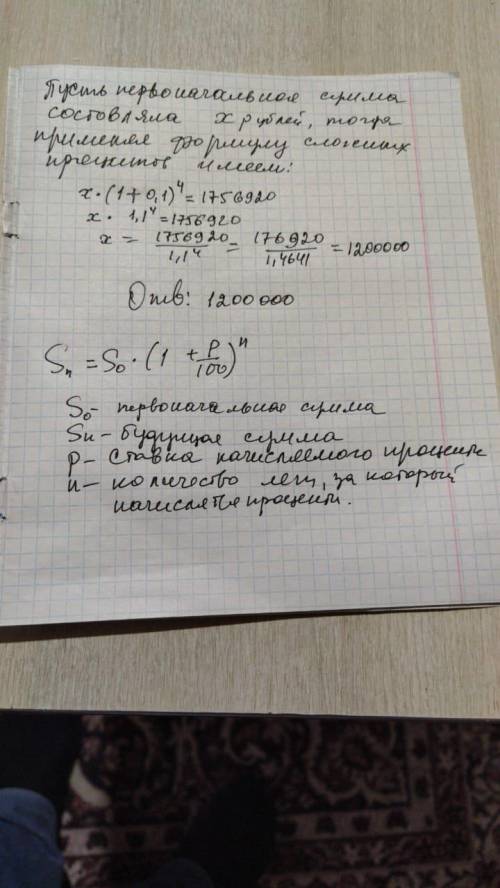 Пусть первоначальная сумма
составляла х рублей, тогда
применяя формулу сложных
процентов имеем:
x · (1 + 0,1)⁴ = 1756920
x · 1,1⁴ = 1756920
x = 1756920/1,1⁴ = 176920/1,4641 = 1200000
Отв: 1200000
Sₙ = S₀ · (1 + P/100)ⁿ
S₀ - первоначальная сумма
Sн - будущая сумма
P - ставка начисляемого процента
n - количество лет, за который
начислятся проценты.